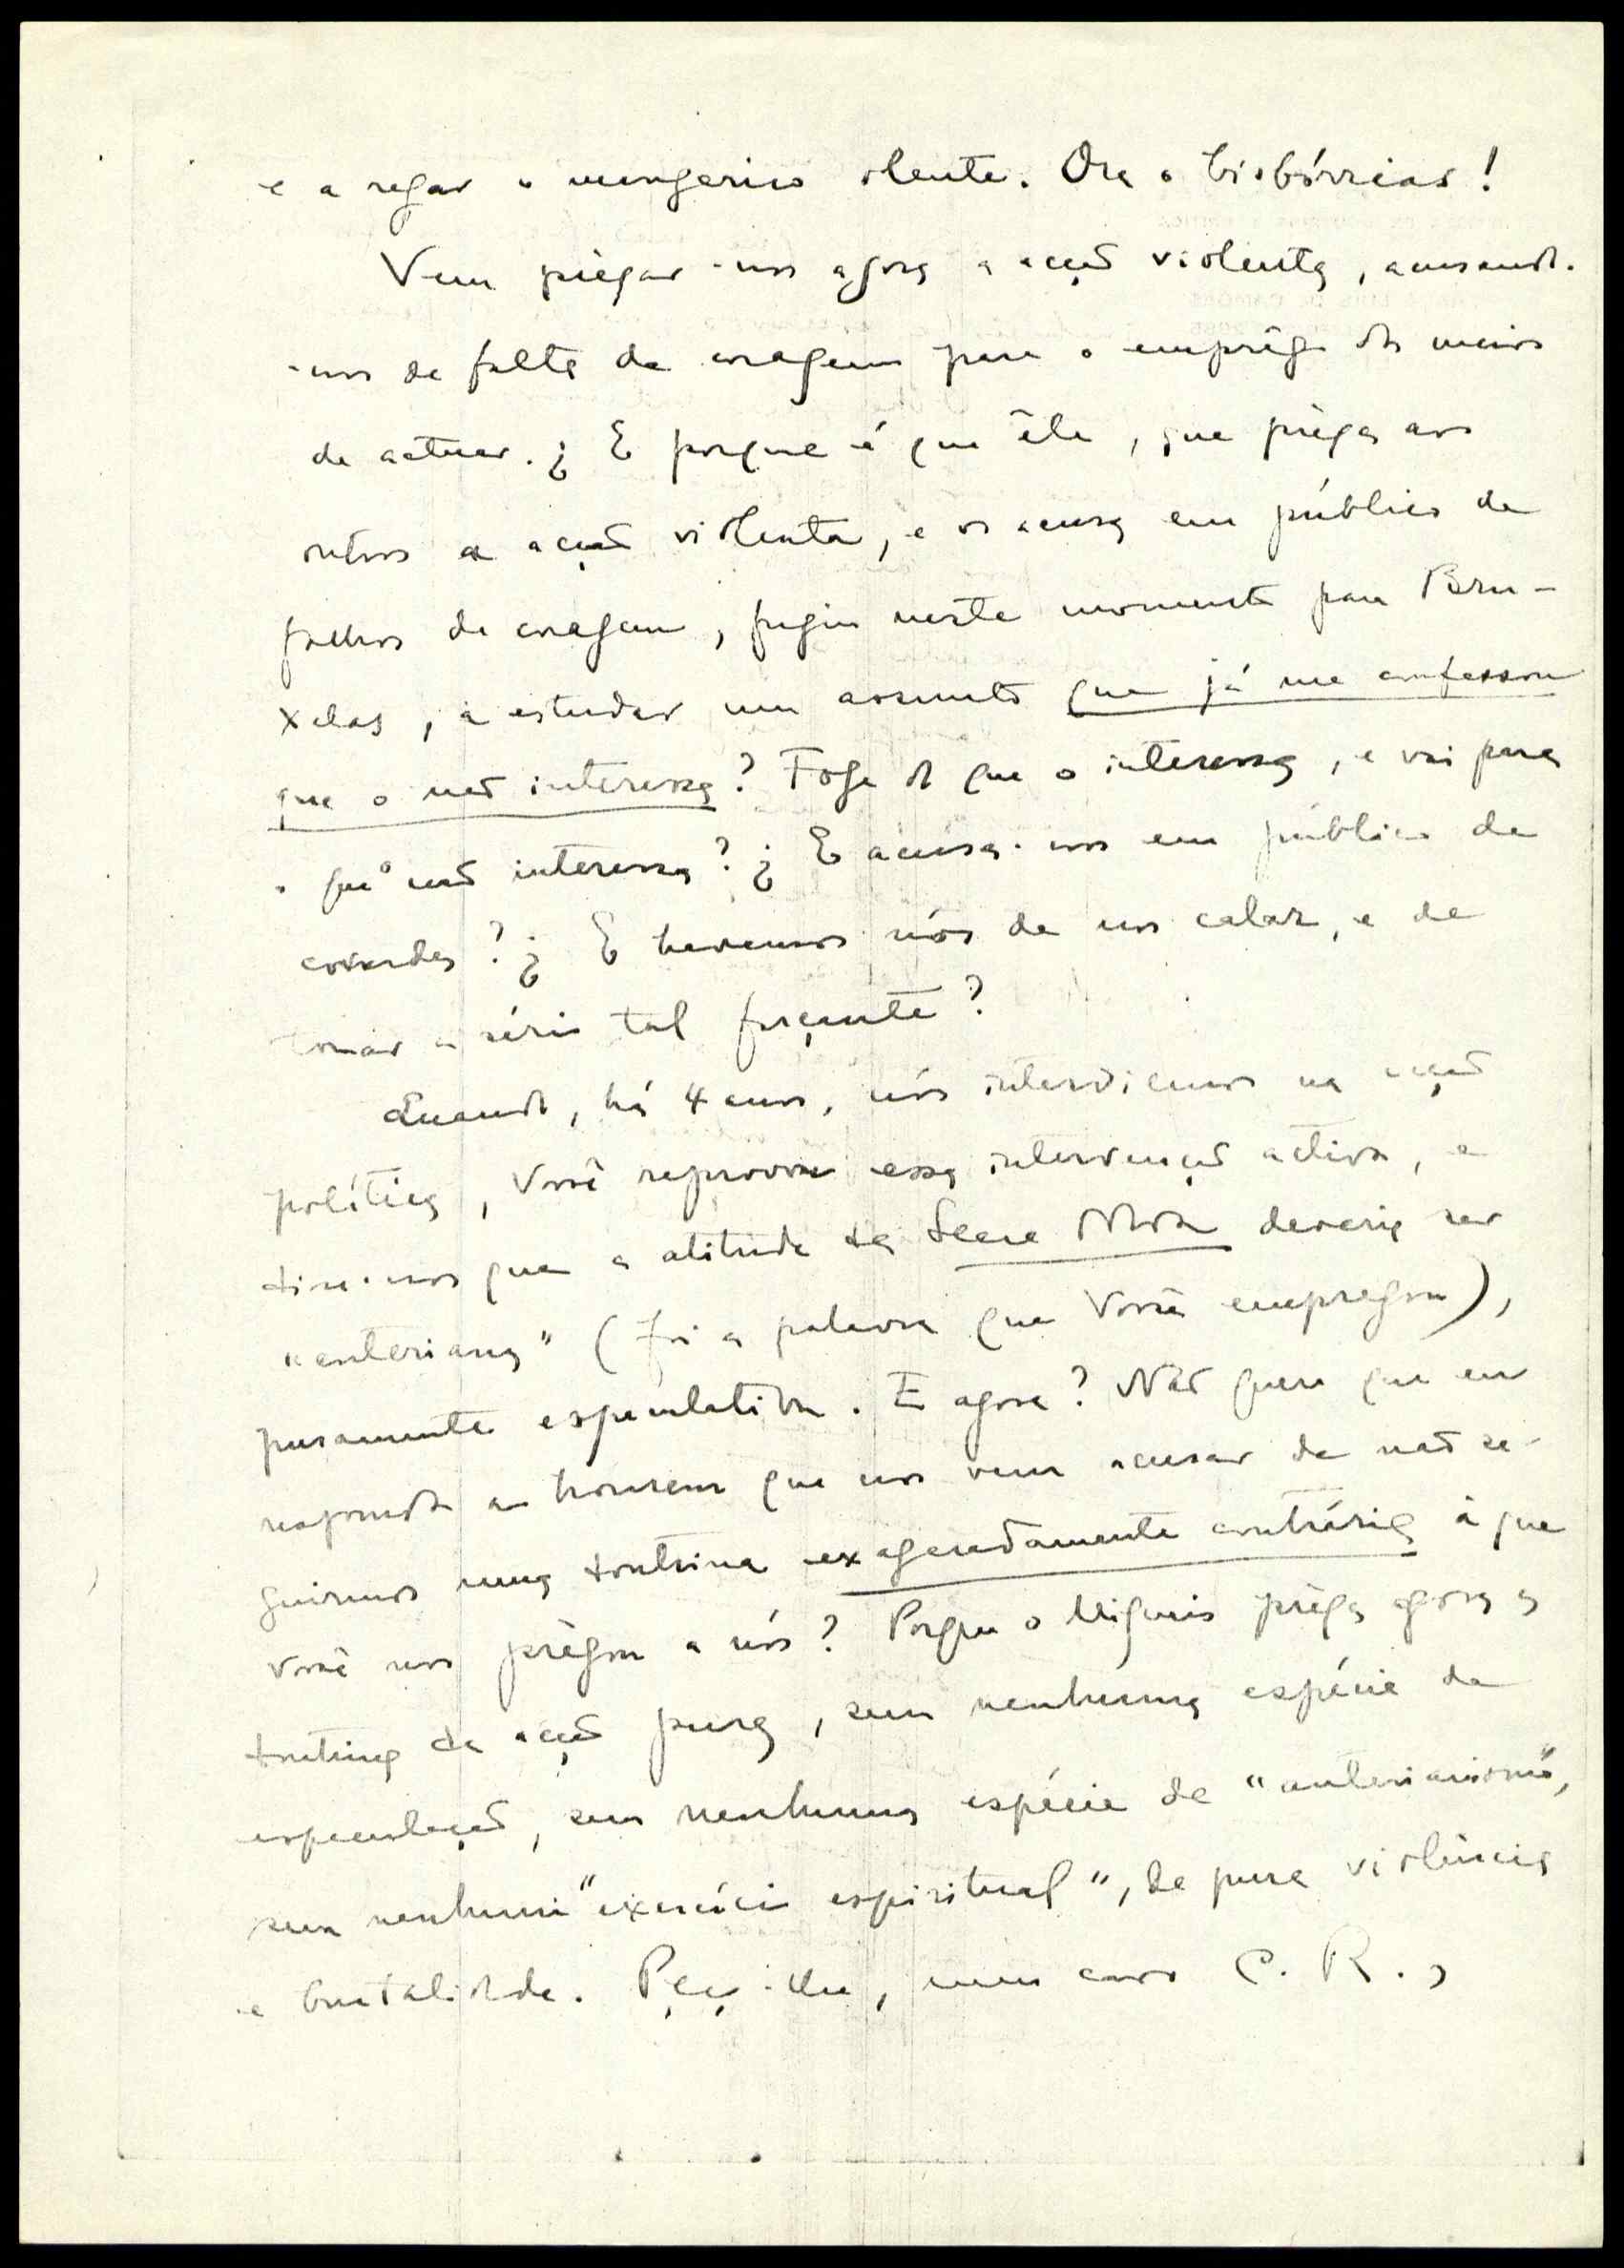 e a regar o mangerico olente. Ora o bisbórrias!
Vem prègar-nos agora a acção violenta, acusando-
-nos de falta de coragem para o emprêgo dos meios
de actuar. ¿E porque é que êle, que prèga aos
outros a acção violenta, e os acusa em público de
falhos de coragem, fugiu neste momento para Bru-
xelas, a estudar um assunto que já me confessou
que o não interessa? Foge do que o interessa, e vai para
o que o não interessa? ¿E acusa-nos em público de
covardes? ¿E havemos nós de nos calar, e de
tomar a sério tal farçante?
Quando, há 4 anos, nós interviemos na acção
política, Você reprovou essa intervenção activa, e
disse-nos que a atitude da Seara Nova deveria ser
"anteriana" (foi a palavra que Você empregou),
puramente especulativa. E agora? Não quere que eu
responda ao homem que nos vem acusar de não se-
guirmos numa doutrina exageradamente contrária à que
Você nos prègou a nós? Porque o Migueis prèga agora a
doutrina da acção pura, sem nenhuma espécie de
especulação, sem nenhuma espécie de "anterianismo",
sem nenhum "exercício espiritual", de pura violência
e brutalidade. Peço-lhe, meu caro C. R.,